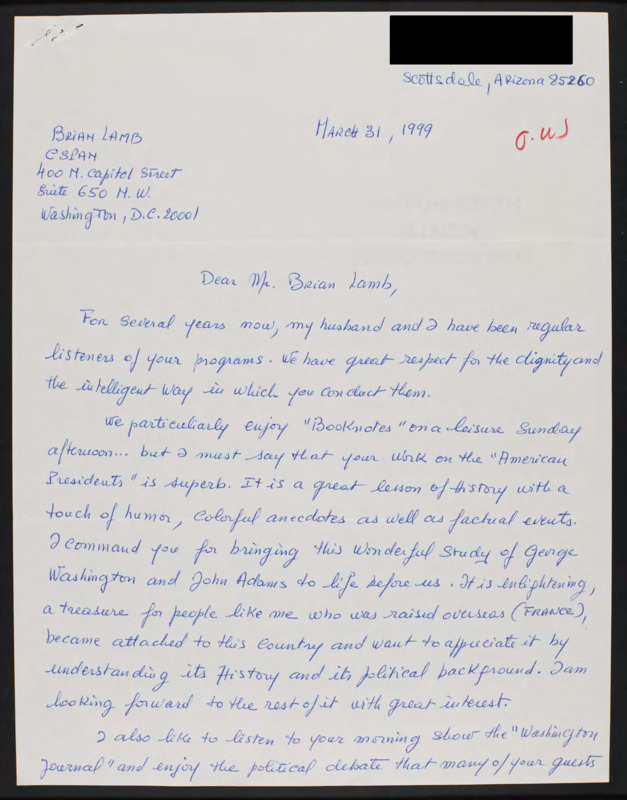 Scottsdale, Arizona 85260
March 31, 1999
G.W
Brian Lamb
CSPAN
400 N. Capitol Street
Suite 650 N.W.
Washington, D.C. 20001
Dear Mr. Brian Lamb,
For several years now, my husband and I have been regular
listeners of your programs. We have great respect for the dignity and
the intelligent way in which you conduct them.
We particuliarly enjoy "Booknotes" on a leisure Sunday
afternoon... but I must say that your work on the "American
Presidents" is superb. It is a great lesson of History with a
touch of humor, colorful anecdotes as well as factual events.
I command you for bringing this wonderful study of George
Washington and John Adams to life before us. It is enlightening,
a treasure for people like me who was raised overseas (FRANCE),
became attached to this country and want to appreciate it by
understanding its History and its political background. I am
looking forward to the rest of it with great interest.
I also like to listen to your morning show the "Washington
Journal" and enjoy the political debate that many of your guests